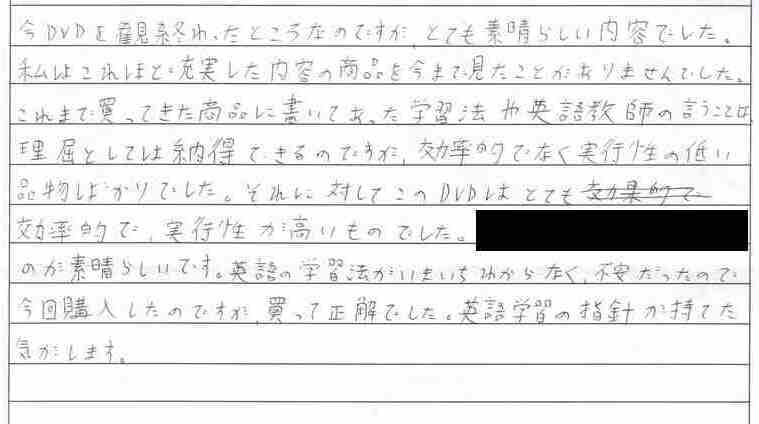 今DVDを観終わったところなのですが、とても素晴らしい内容でした。
私はこれほど充実した内容の商品を今まで見たことがありませんでした。
これまで買ってきた商品に書いてあった学習法や英語教師の言うことは、
理屈としては納得できるのですが、効率的でなく実行性の低い
品物ばかりでした。それに対してこのDVDはとても効果的で
効率的で、実行性が高いものでした。
のが素晴らしいです。英語の学習法がいまいちわからなく、不安だったので
今回購入したのですが、買って正解でした。英語学習の指針が持てた
気がします。